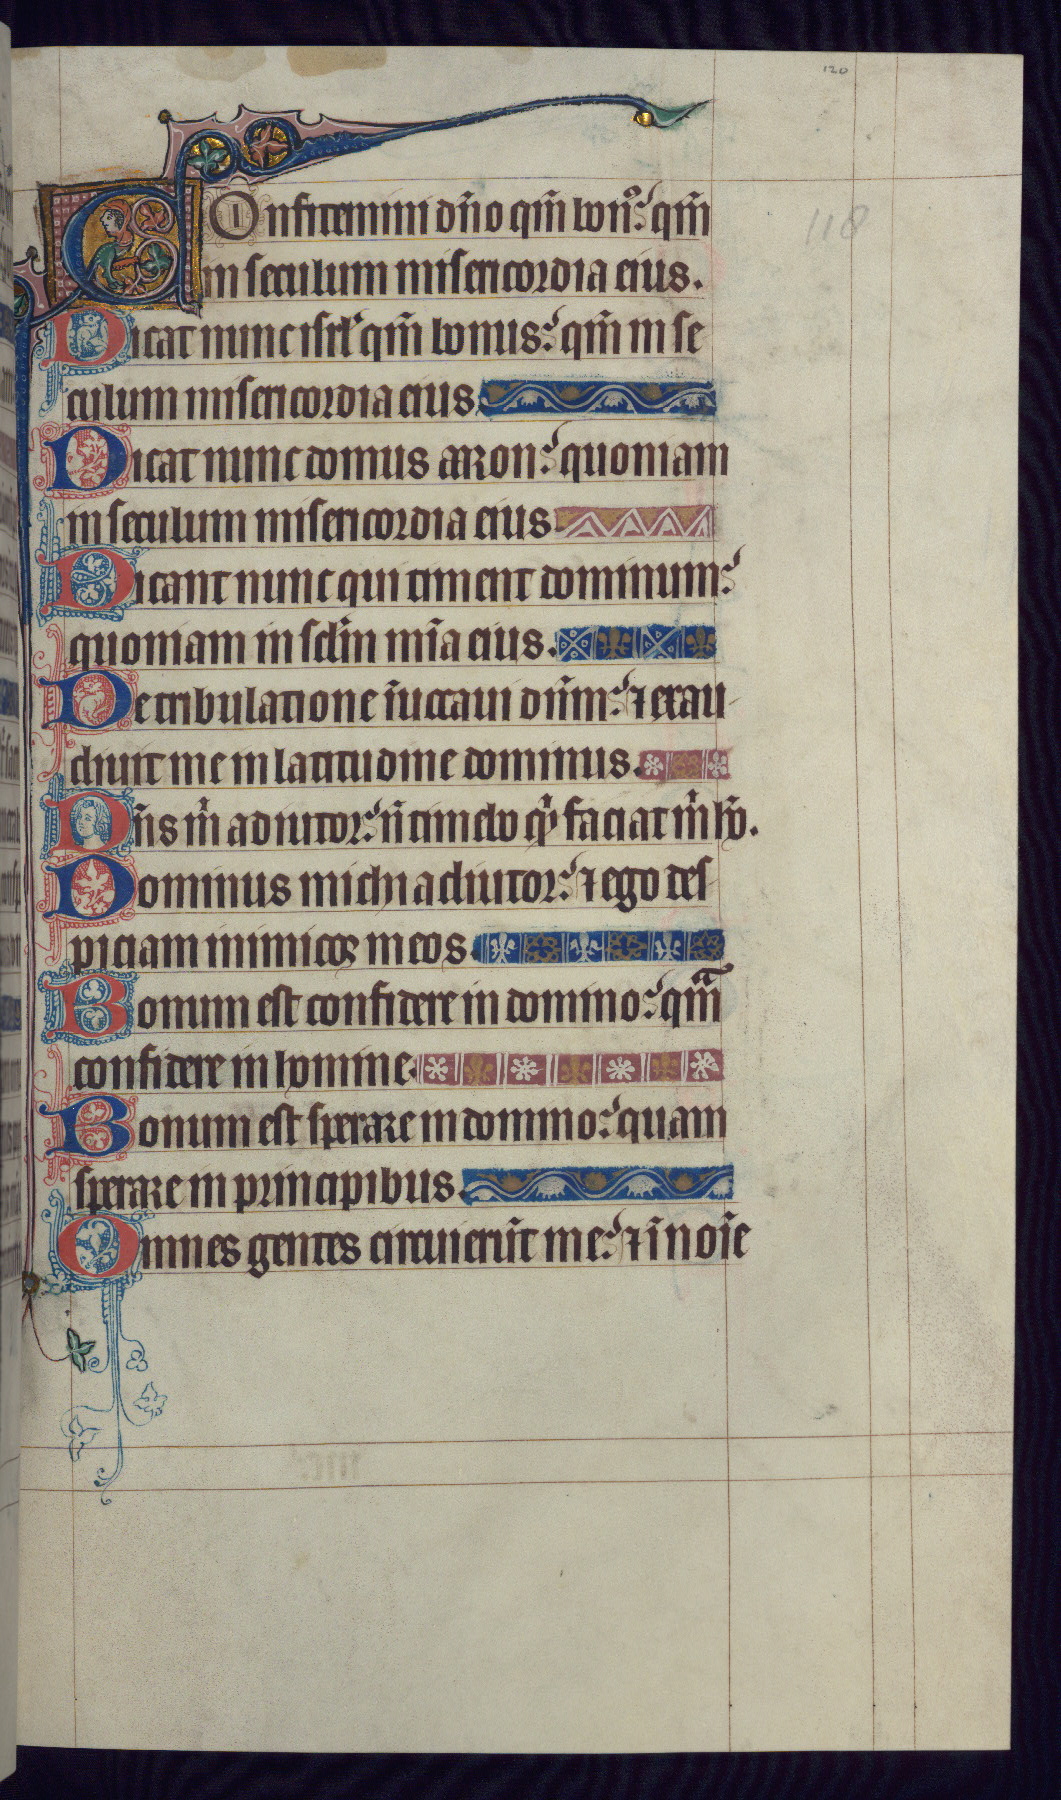 120
118
COnfitemini dn̄o qm̄ bon᷒: qm̄
in seculum misericordia eius.
Dicat nunc isrl' qm̄ bonus: qm̄ in se
culum misericordia eius.
Dicat nunc domus aaron: quoniam
in seculum misericordia eius.
Dicant nunc qui timent dominum:
quoniam in scl̄m mīa eius.
De tribulatione īuocaui dn̄m: ⁊ exau
diuit me in latitudine dominus.
Dn̄s m̄ adiutor: n̄ timebo qͥd faciat m̄ hō.
Dominus michi adiutor: ⁊ ego des
piciam inimicos meos.
Bonum est confidere in domino: qm̄
confidere in homine.
Bonum est sperare in domino: quam
sperare in principibus.
Omnes gentes circuierūt me: ⁊ ī noīe